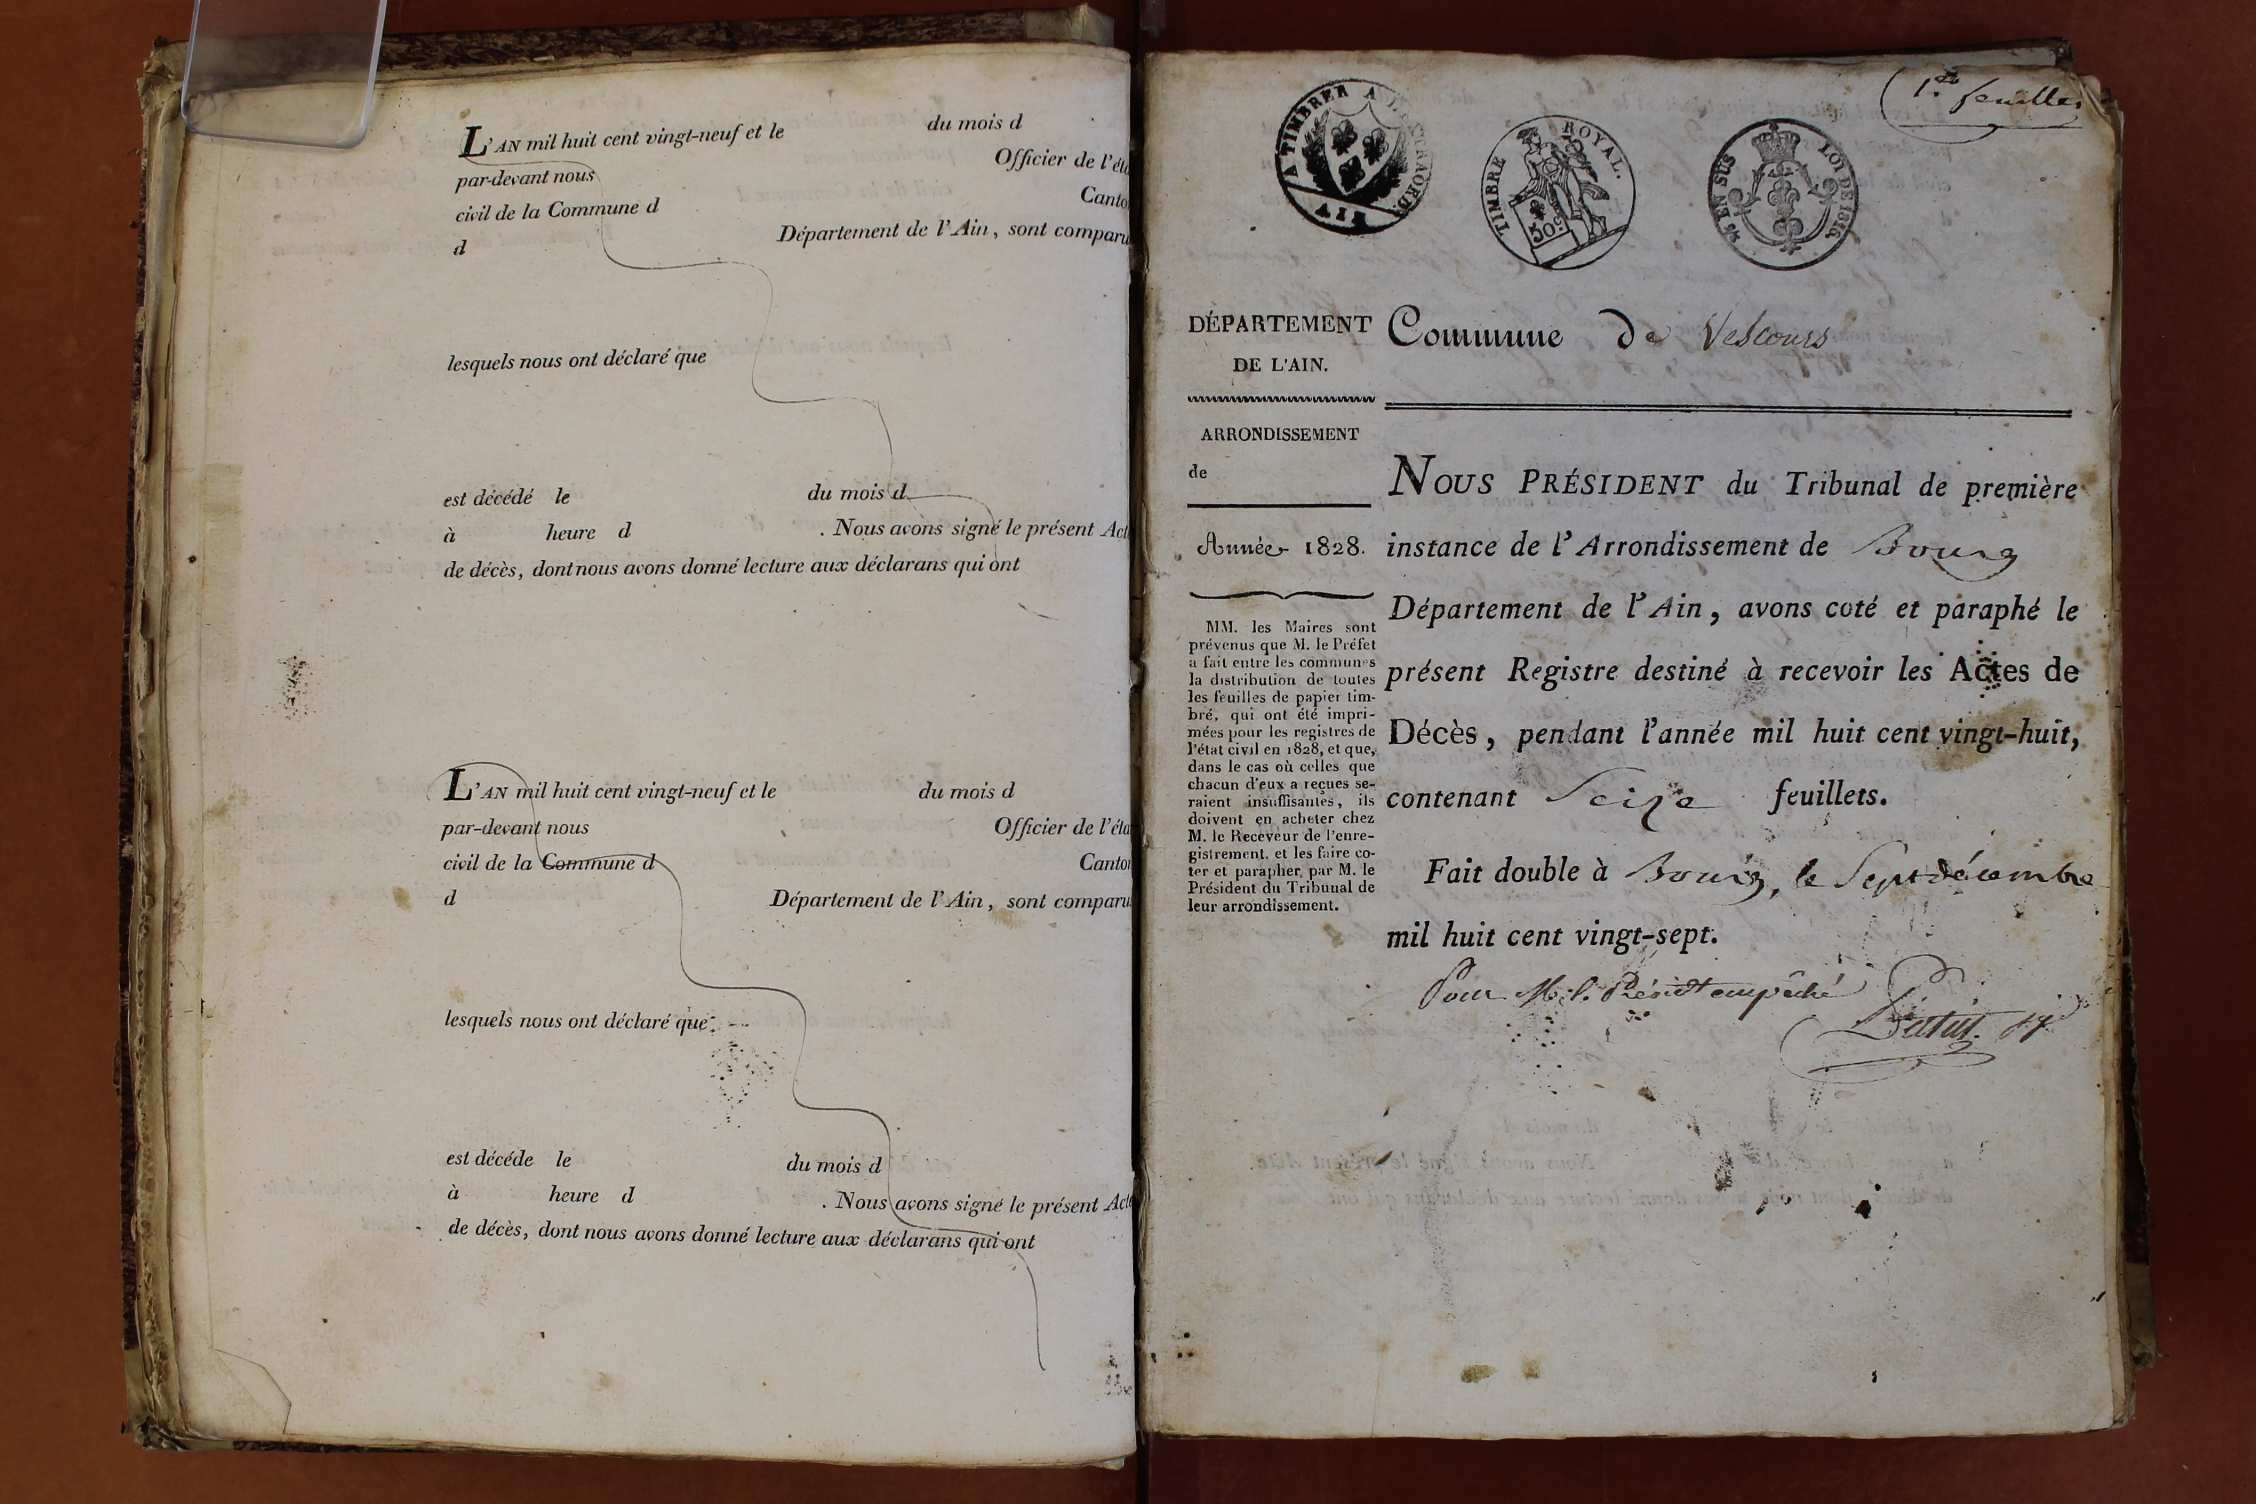 L'AN mil huit cent vingt-neuf et le du mois d
par-devant nous Officier de l'éta
civil de la Commune d Canto
d Département de l'Ain, sont comparu
lesquels nous ont déclaré que
est décédé le du mois d
à heure d . Nous avons signé le présent Act
de décès, dont nous avons donné lecture aux déclarans qui ont
L'AN mil huit cent vingt-neuf et le du mois d
par-devant nous Officier de l'éta
civil de la Commune d Canton
d Département de l'Ain, sont comparu
lesquels nous ont déclaré que
est décéde le du mois d
à heure d . Nous avons signé le présent Acte
de décès, dont nous avons donné lecture aux déclarans qui ont
1.er feuillet
A TIMBRER A L'EXTRAORD.
AIN
TIMBRE ROYAL.
50c
EN SUS LOI DE 1816.
DÉPARTEMENT
DE L'AIN.
ARRONDISSEMENT
de
Année 1828.
MM. les Maires sont
prévenus que M. le Préfet
a fait entre les communes
la distribution de toutes
les feuilles de papier tim-
bré, qui ont été impri-
mées pour les registres de
l'état civil en 1828, et que,
dans le cas où celles que
chacun d'eux a reçues se-
raient insuffisantes, ils
doivent en acheter chez
M. le Receveur de l'enre-
gistrement, et les faire co-
ter et parapher, par M. le
Président du Tribunal de
leur arrondissement.
Commune de Vescours
NOUS PRÉSIDENT du Tribunal de première
instance de l'Arrondissement de Bourg
Département de l'Ain, avons coté et paraphé le
présent Registre destiné à recevoir les Actes de
Décès, pendant l'année mil huit cent vingt-huit,
contenant Seize feuillets.
Fait double à Bourg, le Sept décembre
mil huit cent vingt-sept.
Pour M. l. Présidt empêché